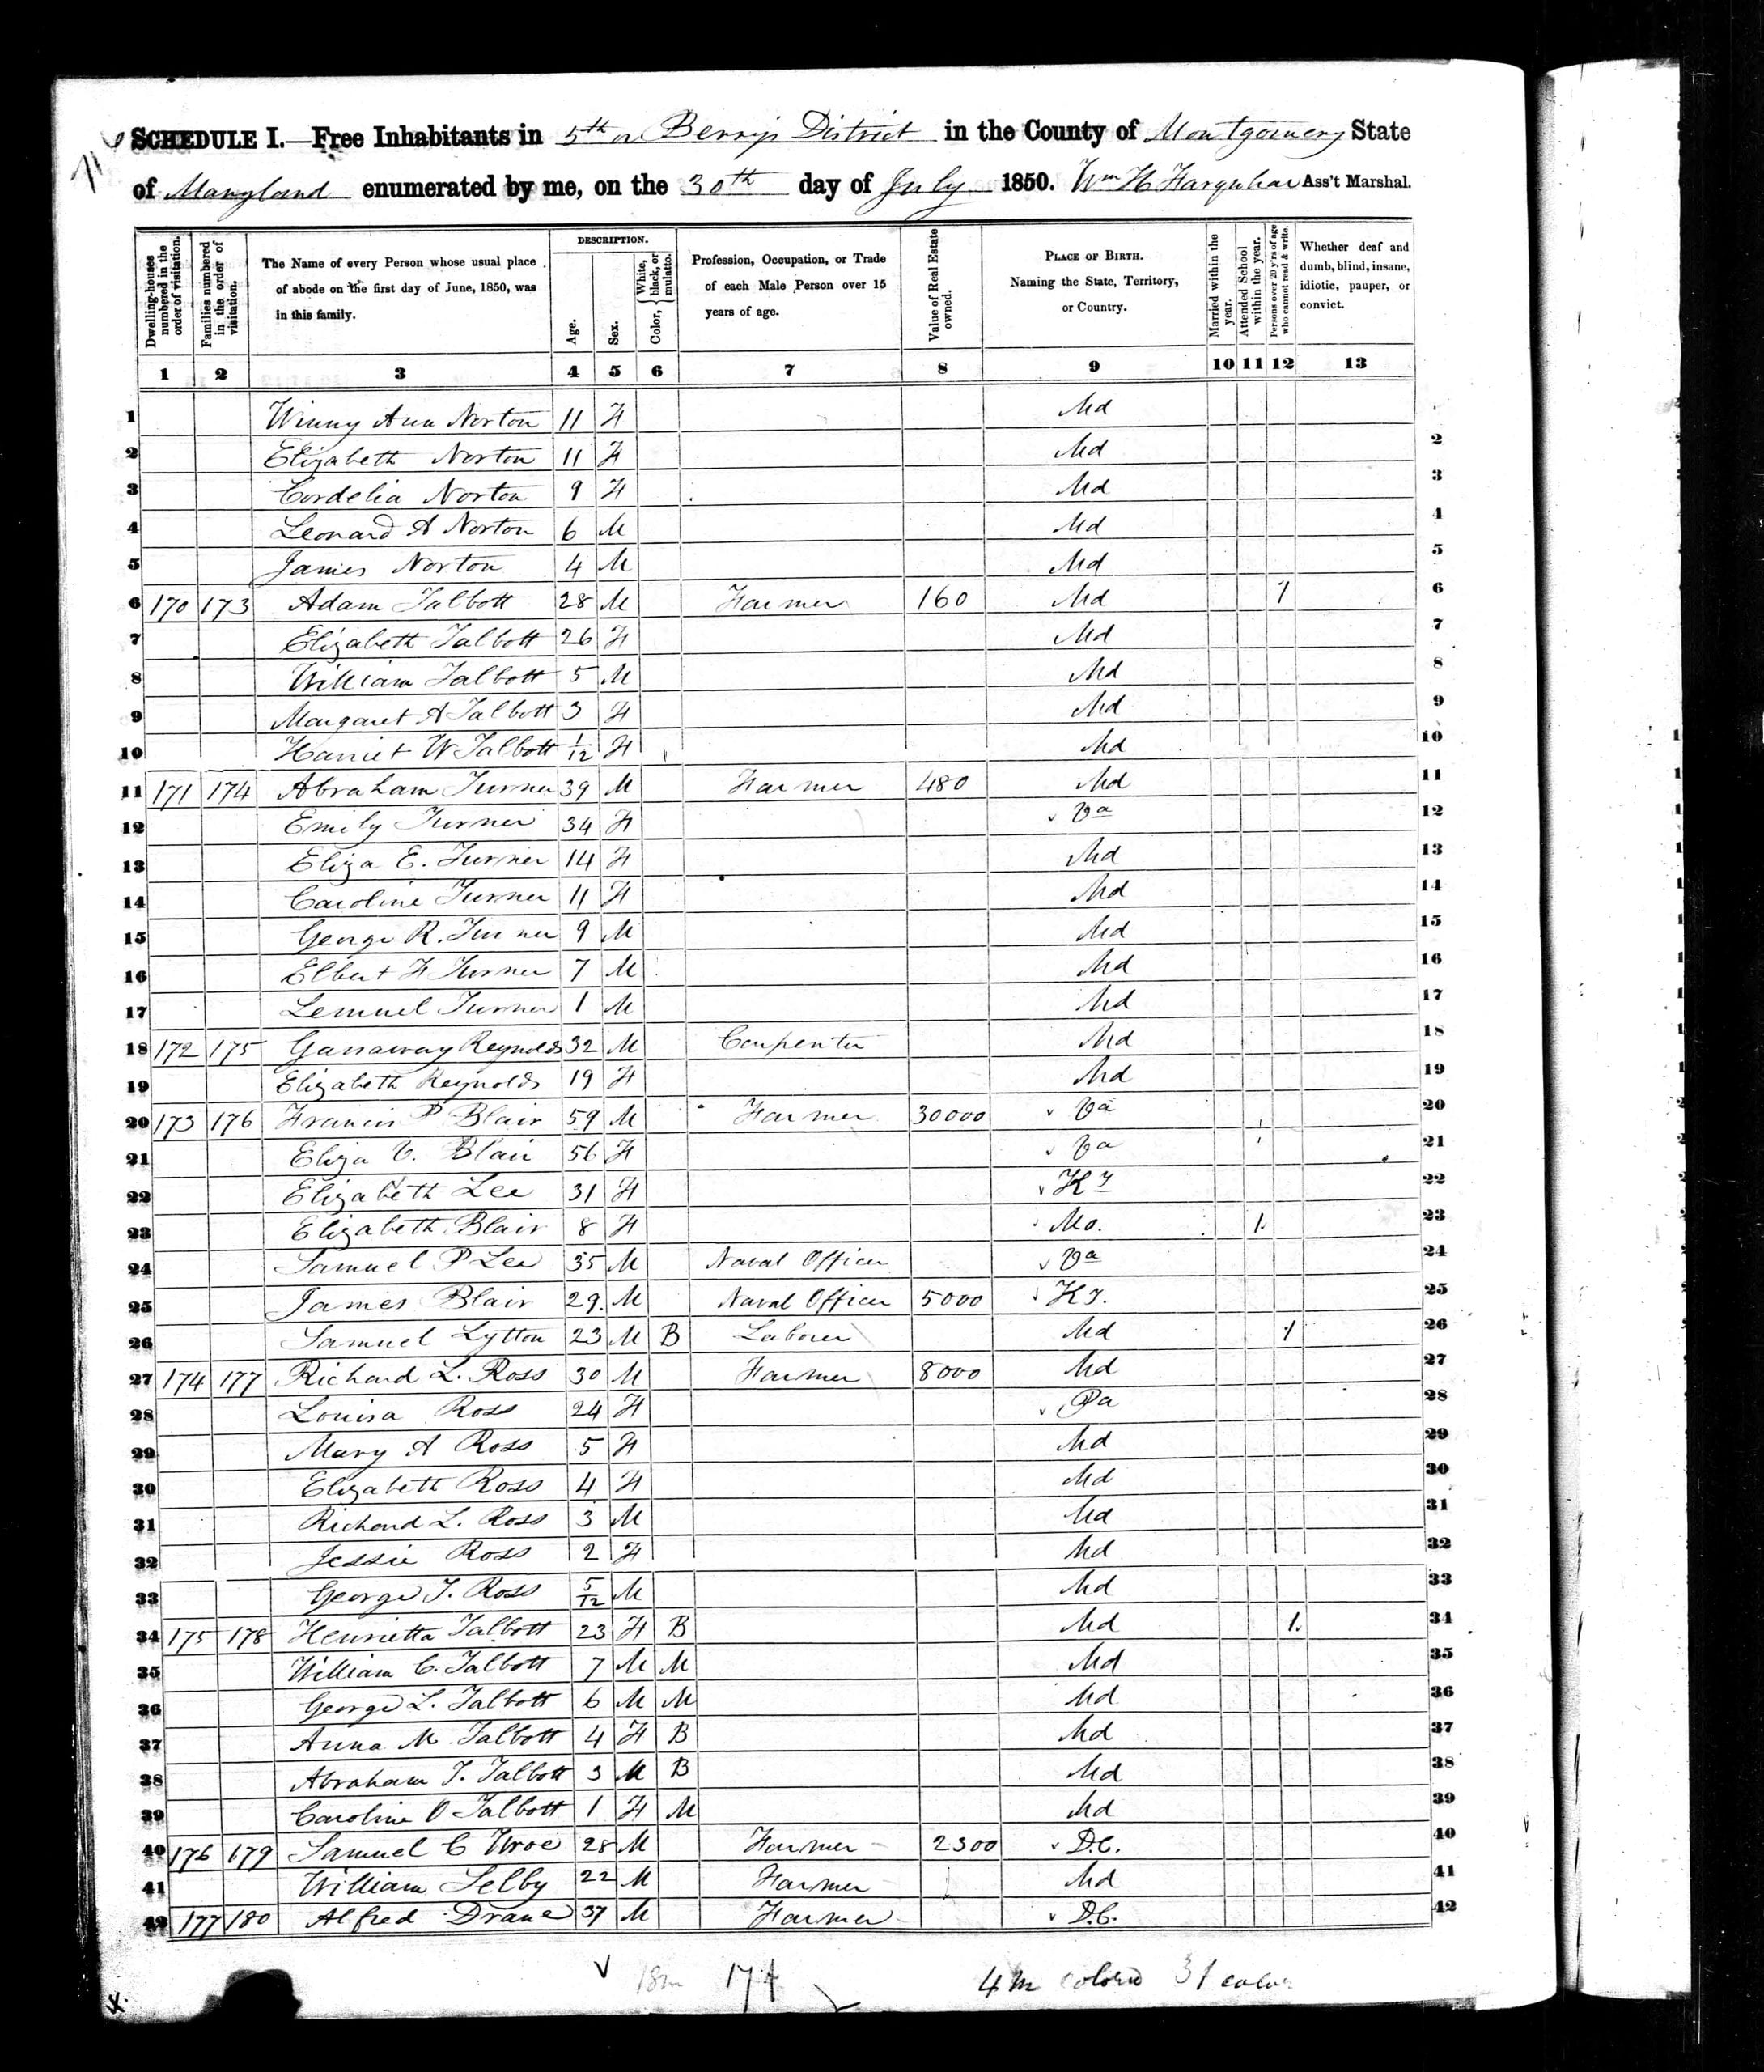 716
SCHEDULE I.—Free Inhabitants in 5th or Berry's District in the County of Montgomery State
of Maryland enumerated by me, on the 30th day of July 1850. Wm H Farquhar Ass't Marshal.
Dwelling-houses numbered in the order of visitation.
Families numbered in the order of visitation.
The Name of every Person whose usual place of abode on the first day of June, 1850, was in this family.
DESCRIPTION.
Age.
Sex.
Color, { White, black, or mulatto.
Profession, Occupation, or Trade of each Male Person over 15 years of age.
Value of Real Estate owned.
PLACE OF BIRTH. Naming the State, Territory, or Country.
Married within the year.
Attended School within the year.
Persons over 20 y'rs of age who cannot read & write.
Whether deaf and dumb, blind, insane, idiotic, pauper, or convict.
1 2 3 4 5 6 7 8 9 10 11 12 13
1 Winny Ann Norton 11 F Md
2 Elizabeth Norton 11 F Md 2
3 Cordelia Norton 9 F Md 3
4 Leonard A Norton 6 M Md 4
5 James Norton 4 M Md 5
6 170 173 Adam Talbott 28 M Farmer 160 Md 1 6
7 Elizabeth Talbott 26 F Md 7
8 William Talbott 5 M Md 8
9 Margaret A Talbott 3 F Md 9
10 Harriet W Talbott 1/12 F Md 10
11 171 174 Abraham Turner 39 M Farmer 480 Md 11
12 Emily Turner 34 F Va 12
13 Eliza E. Turner 14 F Md 13
14 Caroline Turner 11 F Md 14
15 George R. Turner 9 M Md 15
16 Elbert F Turner 7 M Md 16
17 Lemuel Turner 1 M Md 17
18 172 175 Gassaway Reynolds 32 M Carpenter Md 18
19 Elizabeth Reynolds 19 F Md 19
20 173 176 Francis P Blair 59 M Farmer 30000 Va 20
21 Eliza V. Blair 56 F Va 21
22 Elizabeth Lee 31 F Ky 22
23 Elizabeth Blair 8 F Mo. 1. 23
24 Samuel P Lee 35 M Naval Officer Va 24
25 James Blair 29. M Naval Officer 5000 Ky. 25
26 Samuel Lytton 23 M B Laborer Md 1 26
27 174 177 Richard L. Ross 30 M Farmer 8000 Md 27
28 Louisa Ross 24 F Pa 28
29 Mary A Ross 5 F Md 29
30 Elizabeth Ross 4 F Md 30
31 Richard L. Ross 3 M Md 31
32 Jessie Ross 2 F Md 32
33 George T. Ross 5/12 M Md 33
34 175 178 Henrietta Talbott 23 F B Md 1. 34
35 William C. Talbott 7 M M Md 35
36 George L. Talbott 6 M M Md 36
37 Anna M Talbott 4 F B Md 37
38 Abraham T. Talbott 3 M B Md 38
39 Caroline V Talbott 1 F M Md 39
40 176 179 Samuel C Wroe 28 M Farmer 2300 D.C. 40
41 William Selby 22 M Farmer Md 41
42 177 180 Alfred Drane 37 M Farmer D.C. 42
18m 17f 4 m colored 3 f color